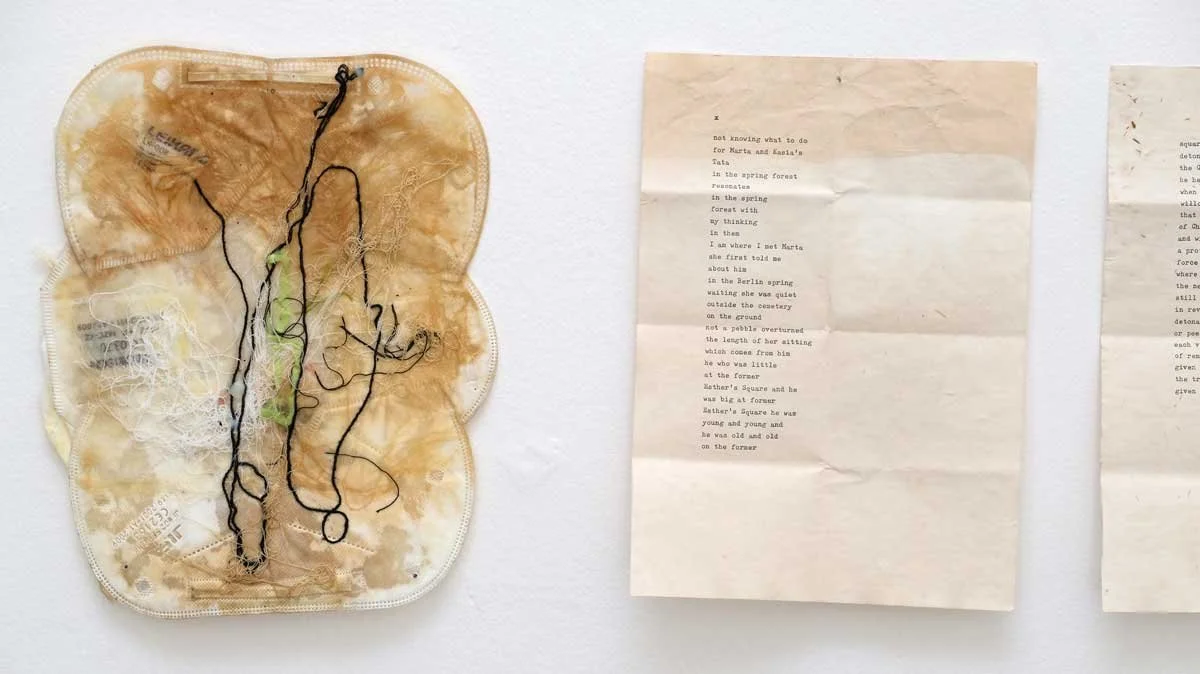 x
not knowing what to do
for Marta and Kasia's
Tata
in the spring forest
resonates
in the spring
forest with
my thinking
in them
I am where I met Marta
she first told me
about him
in the Berlin spring
waiting she was quiet
outside the cemetery
on the ground
not a pebble overturned
the length of her sitting
which comes from him
he who was little
at the former
Esther's Square and he
was big at former
Esther's Square he was
young and young and
he was old and old
on the former
squar
deton
the G
he he
when
willo
that
of Gh
and w
a pro
force
where
the me
still
in rev
detona
or poe
each v
of rem
given
the tr
given